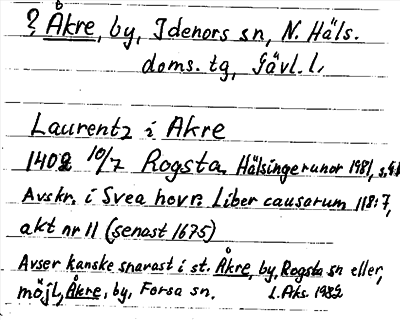 ? Åkre, by, Idenors sn, N. Häls.
doms. tg, Gävl. l.
Laurentz i Akre
1402 10/7 Rogsta, Hälsingerunor 1981, s.
Avskr. i Svea hovr: Liber causarum 118:7,
akt nr 11 (senast 1675)
Avser kanske snarast i st. Åkre, by, Rogsta sn eller,
möjl, Åkre, by, Forsa sn. L. Aks. 1982